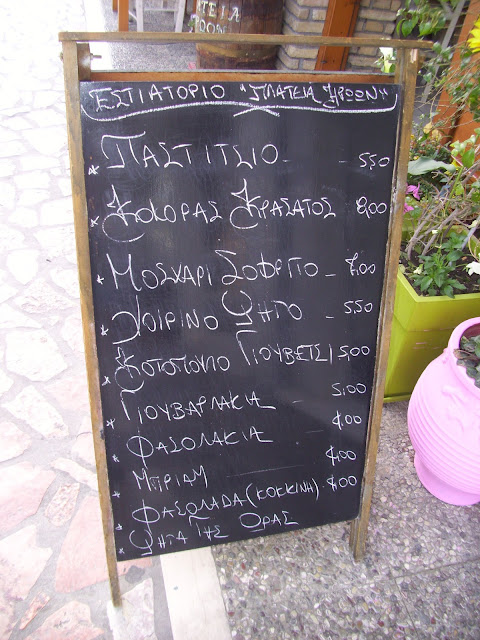 ΤΕΙΑ
ΕΣΤΙΑΤΟΡΙΟ "ΠΛΑΤΕΙΑ ΗΡΩΩΝ"
* ΠΑΣΤΙΤΣΙΟ - - 5,50
* ΚΟΚΟΡΑΣ ΚΡΑΣΑΤΟΣ 8,00
* ΜΟΣΧΑΡΙ ΣΟΦΡΙΤΟ - 7,00
* ΧΟΙΡΙΝΟ ΨΗΤΟ - 5,50
* ΚΟΤΟΠΟΥΛΟ ΓΙΟΥΒΕΤΣΙ 5,00
* ΓΙΟΥΒΑΡΛΑΚΙΑ - 5,00
* ΦΑΣΟΛΑΚΙΑ - 4,00
* ΜΠΡΙΑΜ - 4,00
* ΦΑΣΟΛΑΔΑ (ΚΟΚΚΙΝΗ) - 4,00
* ΨΗΤΑ ΤΗΣ ΩΡΑΣ